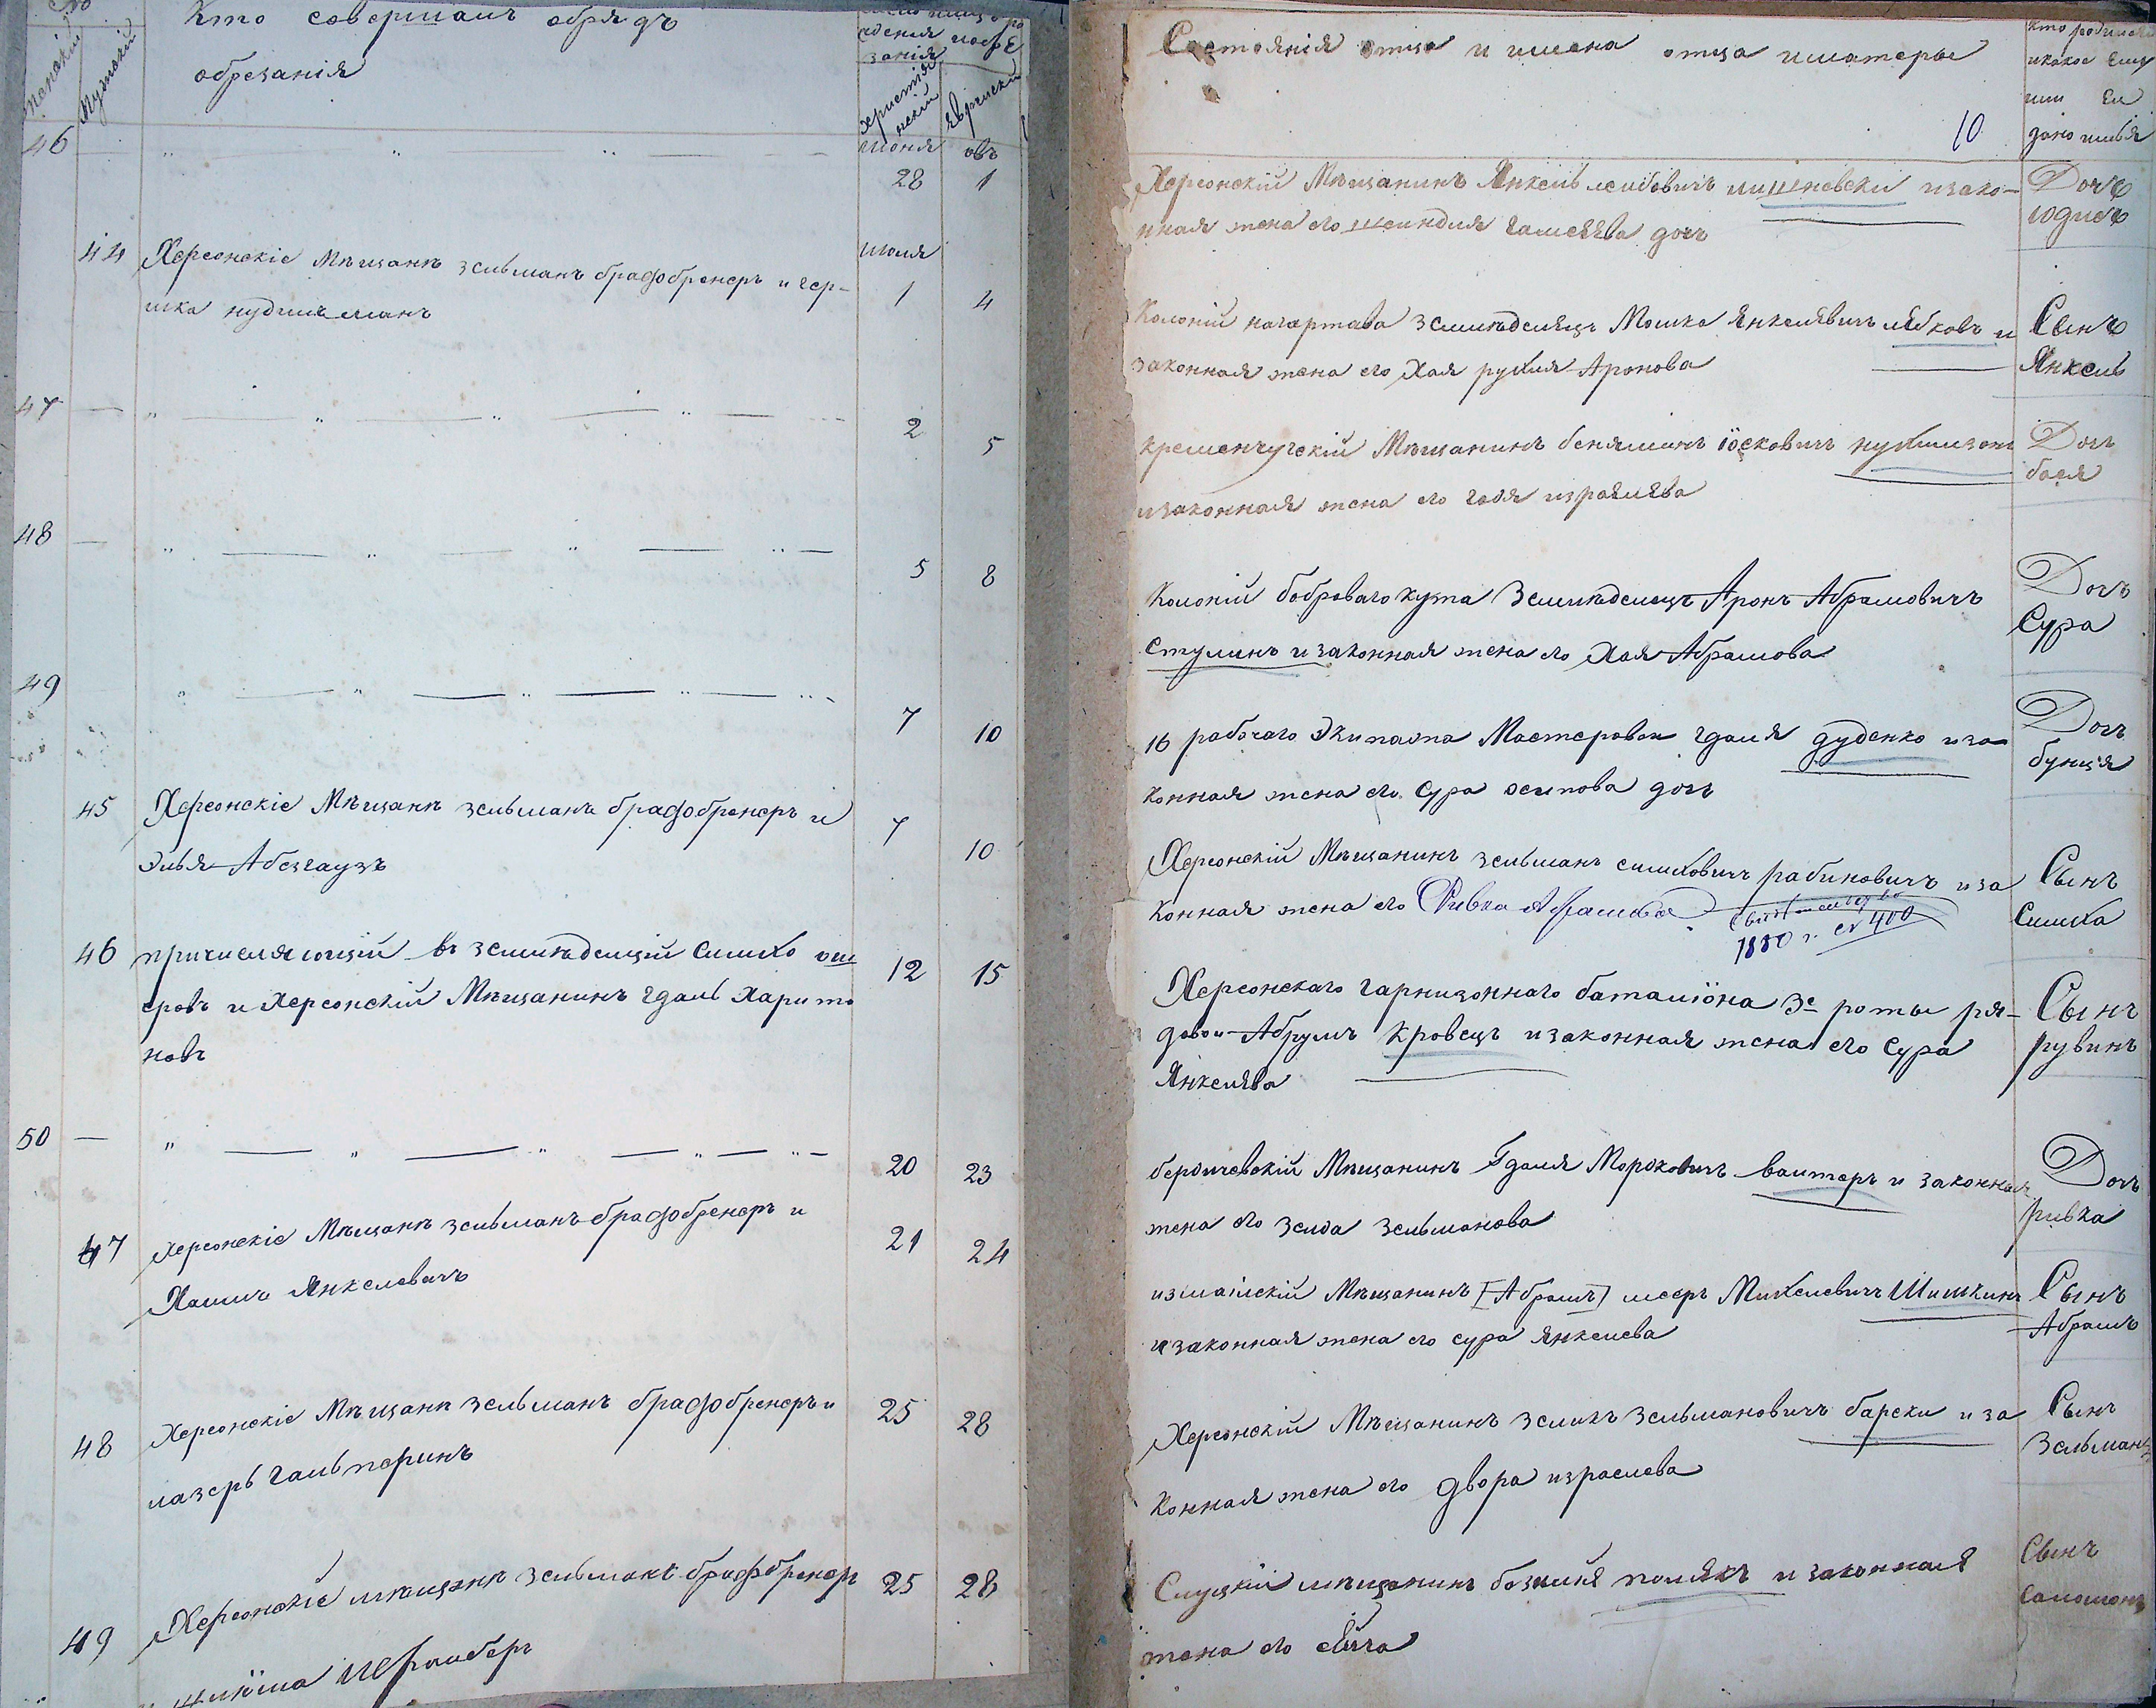 женскій
Мужскій
Кто совершалъ обрядъ
обрезанія
занія
христіа
нскій
Еврейскій
46
Июня овъ
28 1
44 Херсонскіе Мѣщанѣ зельманъ брафобренеръ и гер-
шка нудельманъ
июля
1 4
47
2 5
48
5 8
49
7 10
45 Херсонскіе Мѣщанѣ зельманъ брафобренеръ и
Элья Абезгаузъ
7 10
46 причисляющій въ земледелцій Симхо ош
еровъ и Херсонскій Мѣщанинъ гдаль Харито
новъ
12 15
50
20 23
47 Херсонскіе Мѣщанѣ зельманъ брафобренеръ и
Хаимъ Янкелевичъ
21 24
48 Херсонскіе Мѣщанѣ зельманъ брафобренеръ и
лазерь гальперинъ
25 28
49 Херсонскіе мѣщанѣ зельманъ брафбренеръ
25 28
Состоянія отца и имена отца иматеры
10
Кто родился
икакое Ему
или Еи
дано имья
Херсонскій Мѣщанинъ Янкель леибовичъ изако-
нная жена его шеиндля дочъ
Дочъ
юдисъ
Колоній нагартава Земледелецъ Мошка Янкелявичъ и
законная жена его Хая рухля Аронова
Сынъ
Янкель
кременчугскій Мѣщанинъ беняминъ іосковичъ
изаконная жена его израелява
Дочъ
бася
Колоній бобраваго кута Земледелецъ Аронъ Абрамовичъ
Стулинъ и законная жена его Хая Абрамова
Дочъ
Сура
16 рабочаго Экипажа Мастеровои гдаля дуденко иза
конная жена его Сура осипова дочъ
Дочъ
бунця
Херсонскій Мѣщанинъ зельманъ симховичъ рабиновичъ иза
конная жена его Ривка Абрамова
1880 г. № 400
Сынъ
Симха
Херсонскаго гарнизоннаго баталіона 3е роты ря-
довои Абрумъ Кровецъ изаконная жена его Сура
Янкелява
Сынъ
рувинъ
бердичевскій Мѣщанинъ Гдаля Мордковичъ ваитеръ и законная
жена его Зелда зельманова
Дочъ
ривка
измаилскій Мѣщанинъ [Абрамъ] мееръ Михелевичъ Шишкинъ
изаконная жена его сура янкелева
Сынъ
Абрамъ
Херсонскій Мѣщанинъ зеликъ Зельмановичъ барски иза
конная жена его двора израелева
Сынъ
Зельманъ
Слуцкій мѣщанинъ полякъ и законная
жена его
Сынъ
Саломонъ